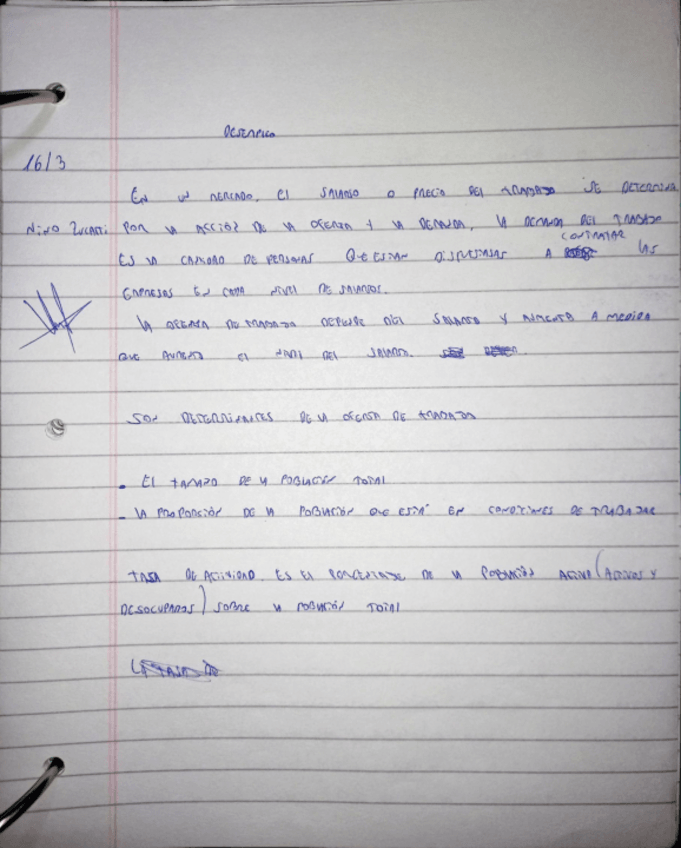 DESEMPLEO
16/3
EN UN MERCADO, EL SALARIO O PRECIO DEL TRABAJO SE DETERMINA
NINO POR LA ACCIÓN DE LA OFERTA Y LA DEMANDA, LA DEMANDA DEL TRABAJO
CONTRATAR
ES LA CANTIDAD DE PERSONAS QUE ESTAN DISPUESTAS A LAS
EMPRESAS EN CADA NIVEL DE SALARIOS.
LA OFERTA DE TRABAJO DEPENDE DEL SALARIO Y AUMENTA A MEDIDA
QUE AUMENTA EL NIVEL DEL SALARIO.
SON DETERMINANTES DE LA OFERTA DE TRABAJO
- EL TAMAÑO DE LA POBLACIÓN TOTAL
- LA PROPORCIÓN DE LA POBLACIÓN QUE ESTÁ EN CONDICIONES DE TRABAJAR
TASA DE ACTIVIDAD. ES EL PORCENTAJE DE LA POBLACIÓN ACTIVA (ACTIVOS Y
DESOCUPADOS) SOBRE LA POBLACIÓN TOTAL